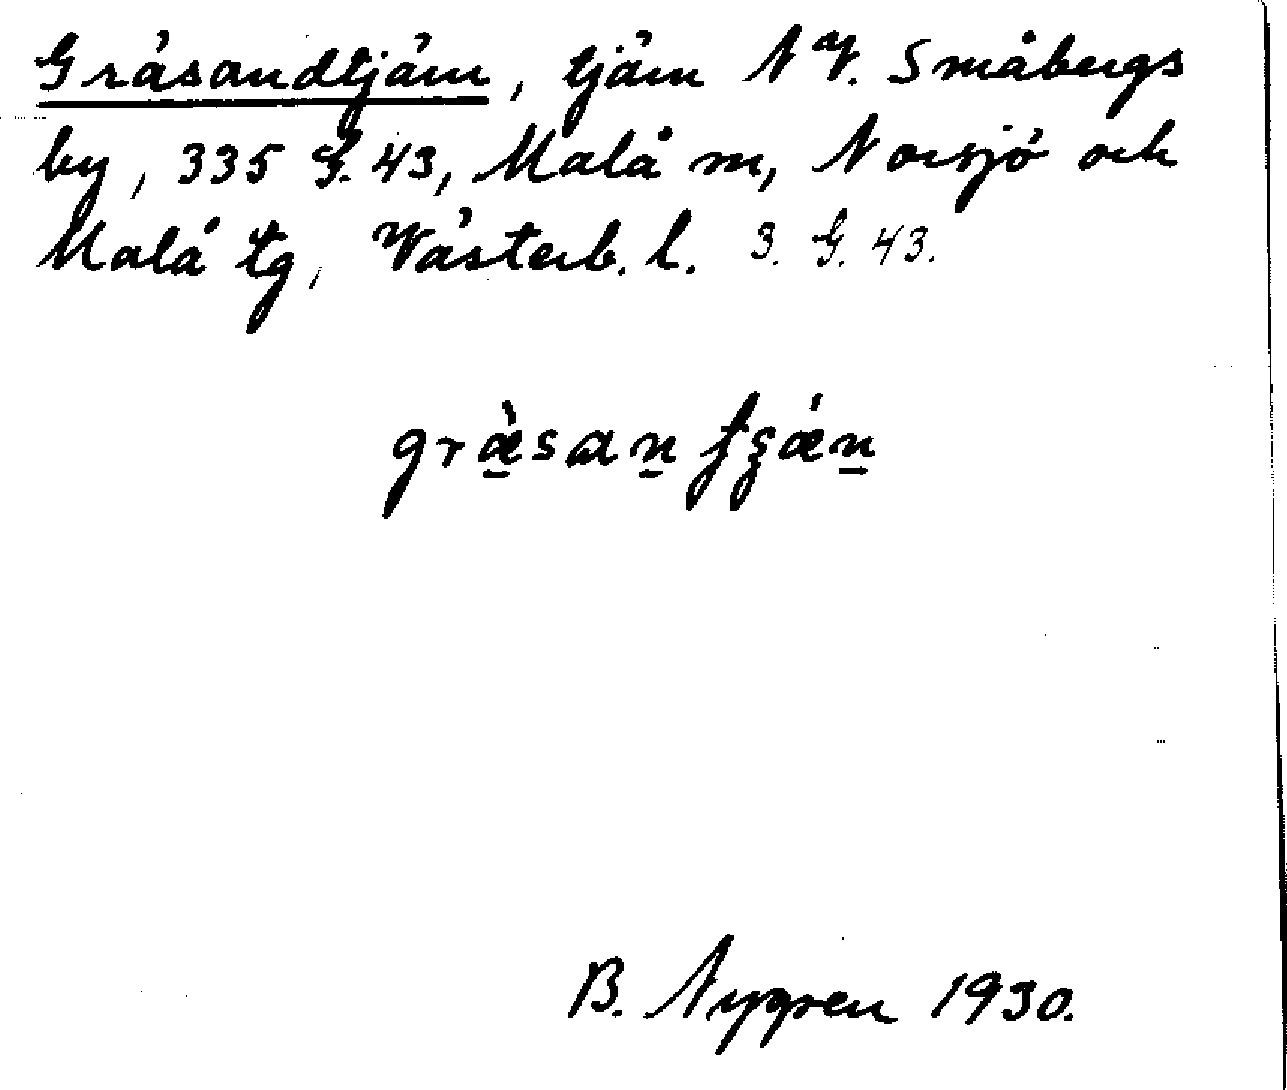 Gräsandtjärn, tjärn NV. Småbergs
by, 335 G. 43, Malå sn, Norsjö och
Malå tg, Västerb. l. 3. G. 43.
græ̠̀san̠
B. Nygren 1930.